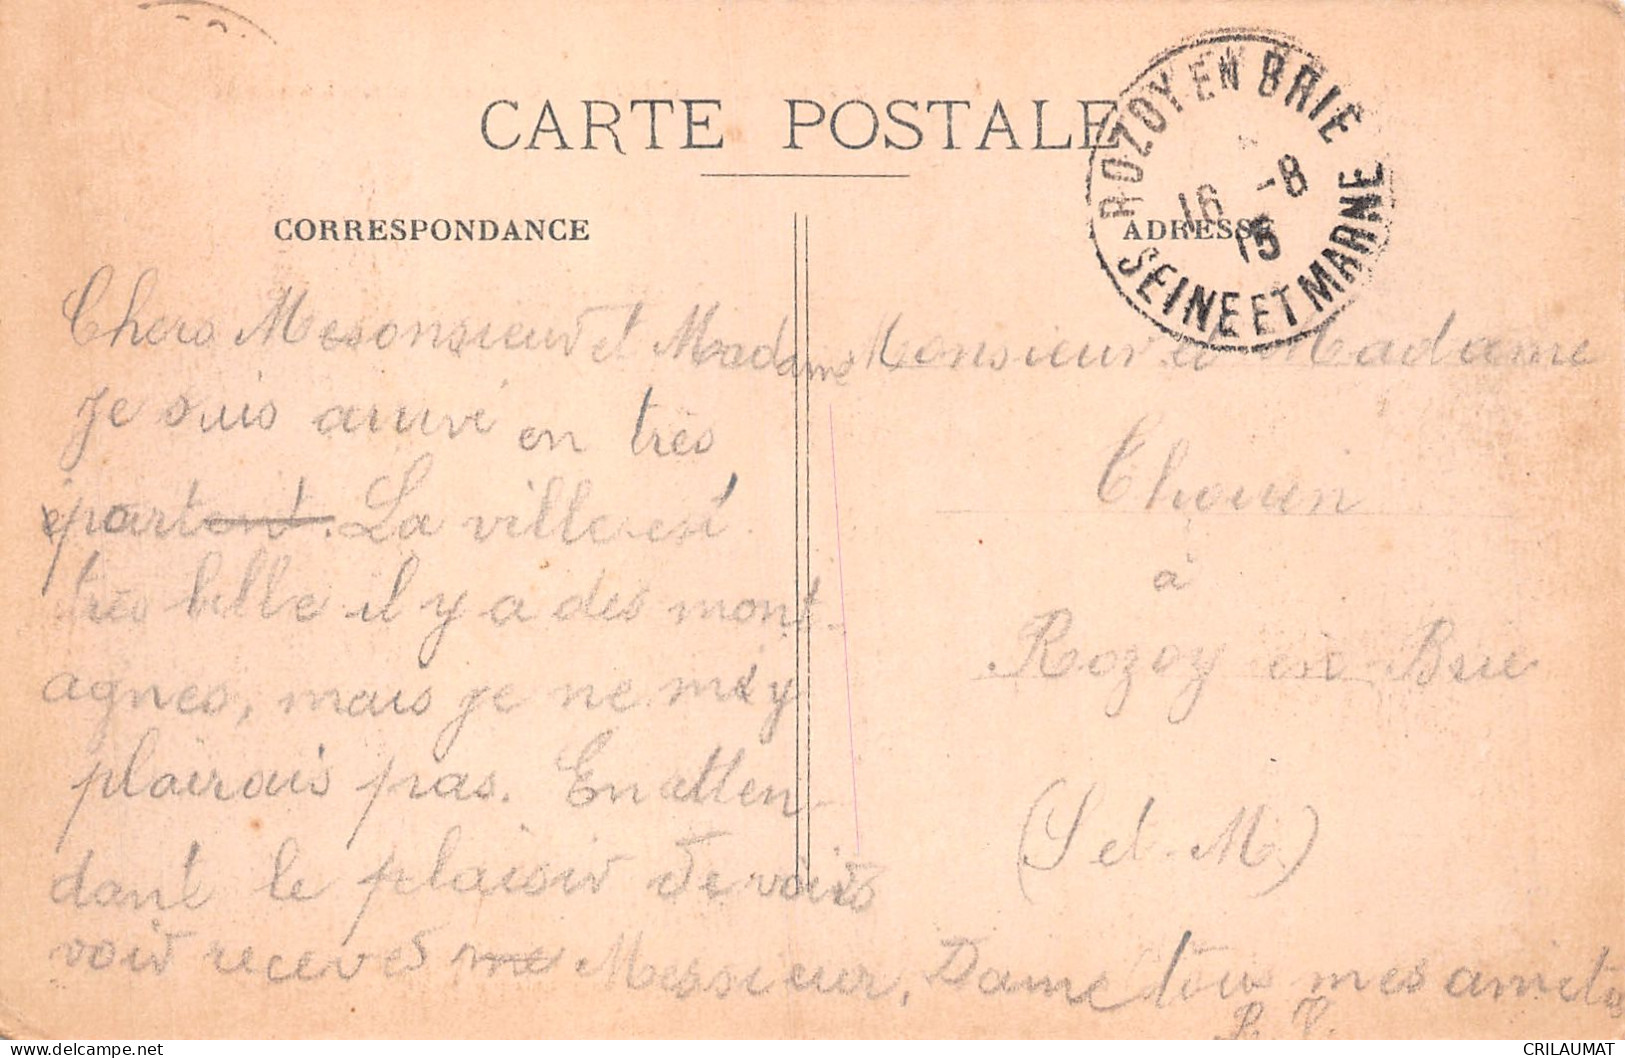 CARTE POSTALE
ROZOY EN BRIE
16 -8
15
SEINE ET MARNE
CORRESPONDANCE
Chers Mesonsieur et Madame
Je suis arrivé en très
La ville est
très belle il y a des mont-
agnes, mais je ne m'y
plairais pas. En atten-
dant le plaisir de vous
voir recevez Messieur, Dame tous mes amités
ADRESSE
Monsieur et Madame
à
Rozoy en Brie
(S et M)
CRILAUMAT